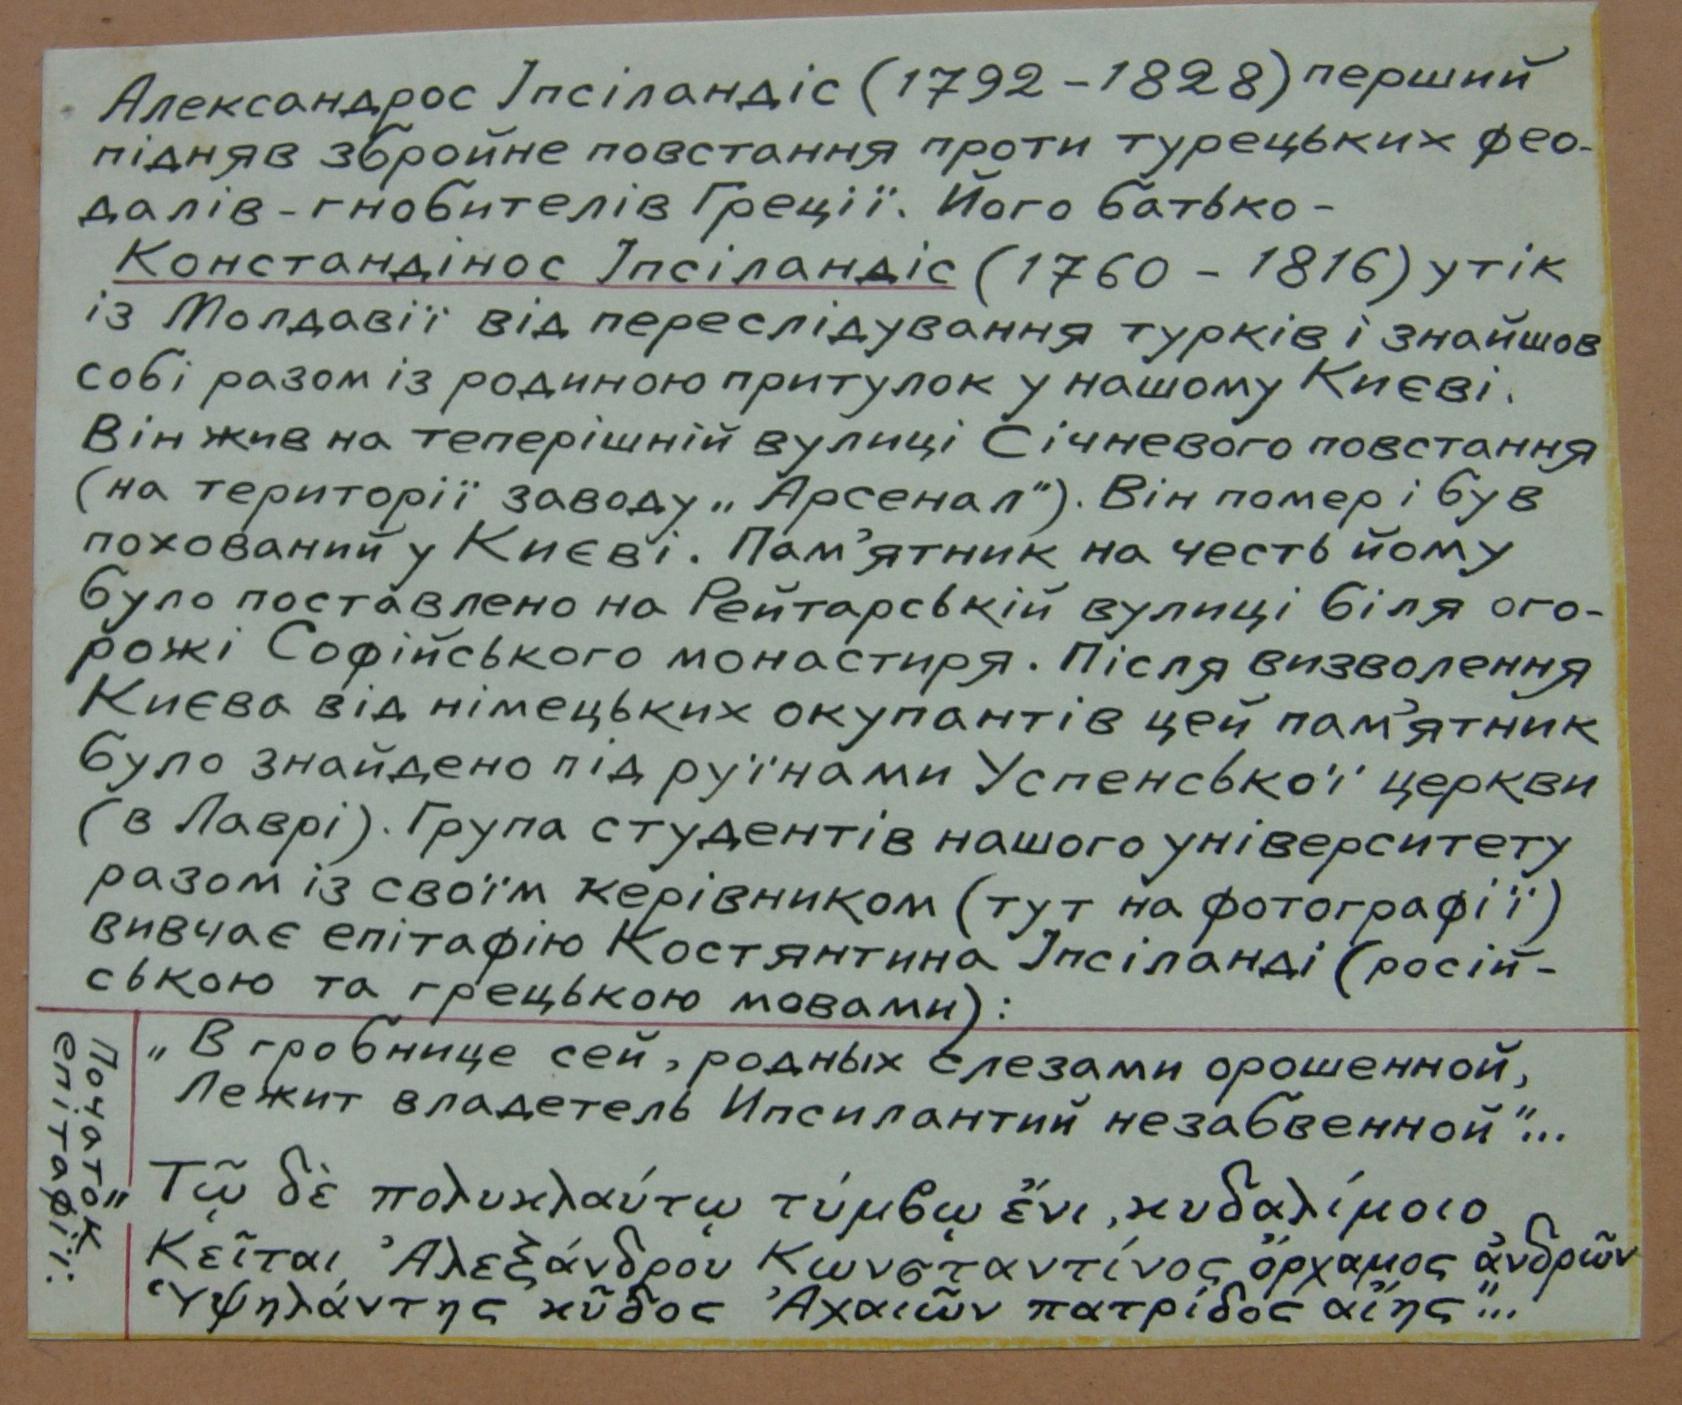 Александрос Іпсіландіс (1792 – 1828) перший
підняв збройне повстання проти турецьких фео-
далів - гнобителів Греції. Його батько -
Констандінос Іпсіландіс (1760 – 1816) утік
із Молдавії від переслідування турків і знайшов
собі разом із родиною притулок у нашому Києві.
Він жив на теперішній вулиці Січневого повстання
(на території заводу „Арсенал"). Він помер і був
похований у Києві. Пам'ятник на честь йому
було поставлено на Рейтарській вулиці біля ого-
рожі Софійського монастиря. Після визволення
Києва від німецьких окупантів цей пам'ятник
було знайдено під руїнами Успенської церкви
(в Лаврі). Група студентів нашого університету
разом із своїм керівником (тут на фотографії)
вивчає епітафію Костянтина Іпсіланді (росій-
ською та грецькою мовами):
Початок
епітафії:
„В гробнице сей, родных слезами орошенной,
Лежит владетель Ипсилантий незабвенной"...
"Τῷ δὲ πολυκλαύτῳ τύμβῳ ἔνι, κυδαλίμοιο
Κεῖται Ἀλεξάνδρου Κωνσταντίνος ὄρχαμος ἀνδρῶν
Ὑψηλάντης κῦδος Ἀχαιῶν πατρίδος αἴης"...